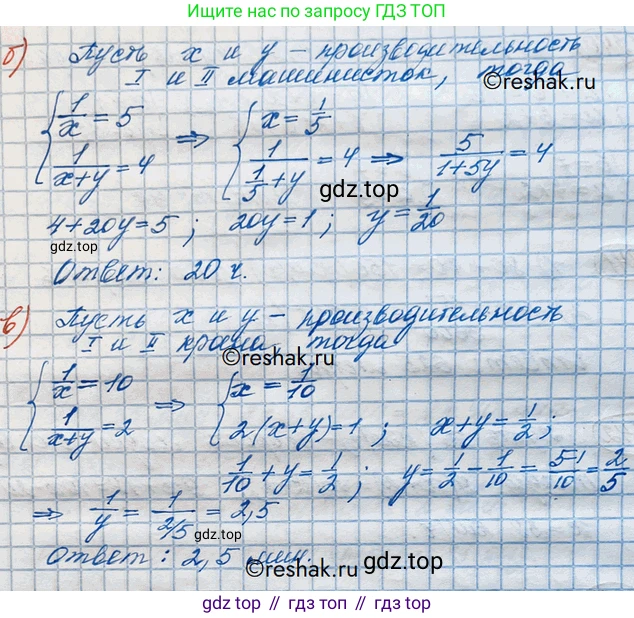 Ищите по запросу ГДЗ ТОП
б) Пусть x и y – производительность
I и II машинисток, тогда
©reshak.ru
{ 1/x = 5 ⇒ { x = 1/5
1/(x+y) = 4 1/(1/5+y) = 4 ⇒ 5/(1+5y) = 4
gdz.top
4+20y=5 ; 20y=1 ; y=1/20
gdz.top
Ответ: 20 ч.
в) Пусть x и y – производительность
I и II крана, тогда
©reshak.ru
{ 1/x = 10 ⇒ { x = 1/10
1/(x+y) = 2 2(x+y)=1 ; x+y=1/2 ;
1/10 + y = 1/2 ; y = 1/2 - 1/10 = (5-1)/10 = 2/5
⇒ 1/y = 1/(2/5) = 2,5
gdz.top
Ответ: 2,5 мин.
©reshak.ru
gdz.top
gdz top // гдз топ // gdz top